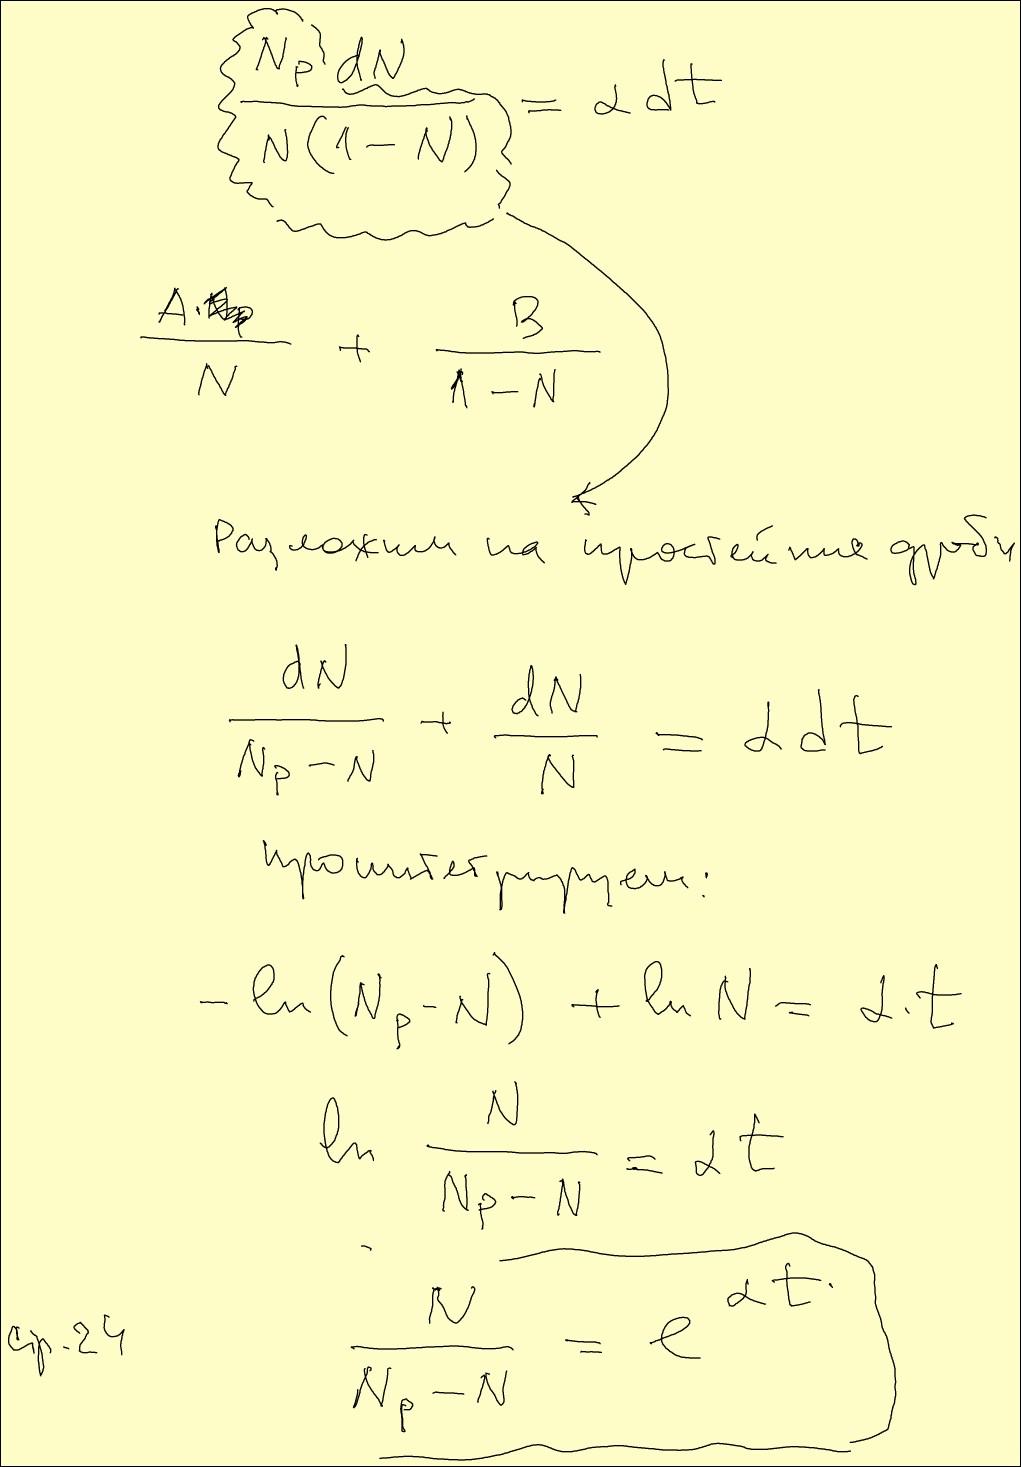 Nр dN / N(1 - N) = α dt
A· / N + B / 1 - N
Разложим на простейшие дроби
dN / Nр - N + dN / N = α dt
проинтегрируем:
- ln(Nр - N) + ln N = α·t
ln N / Nр - N = α t
N / Nр - N = e^αt
стр. 24